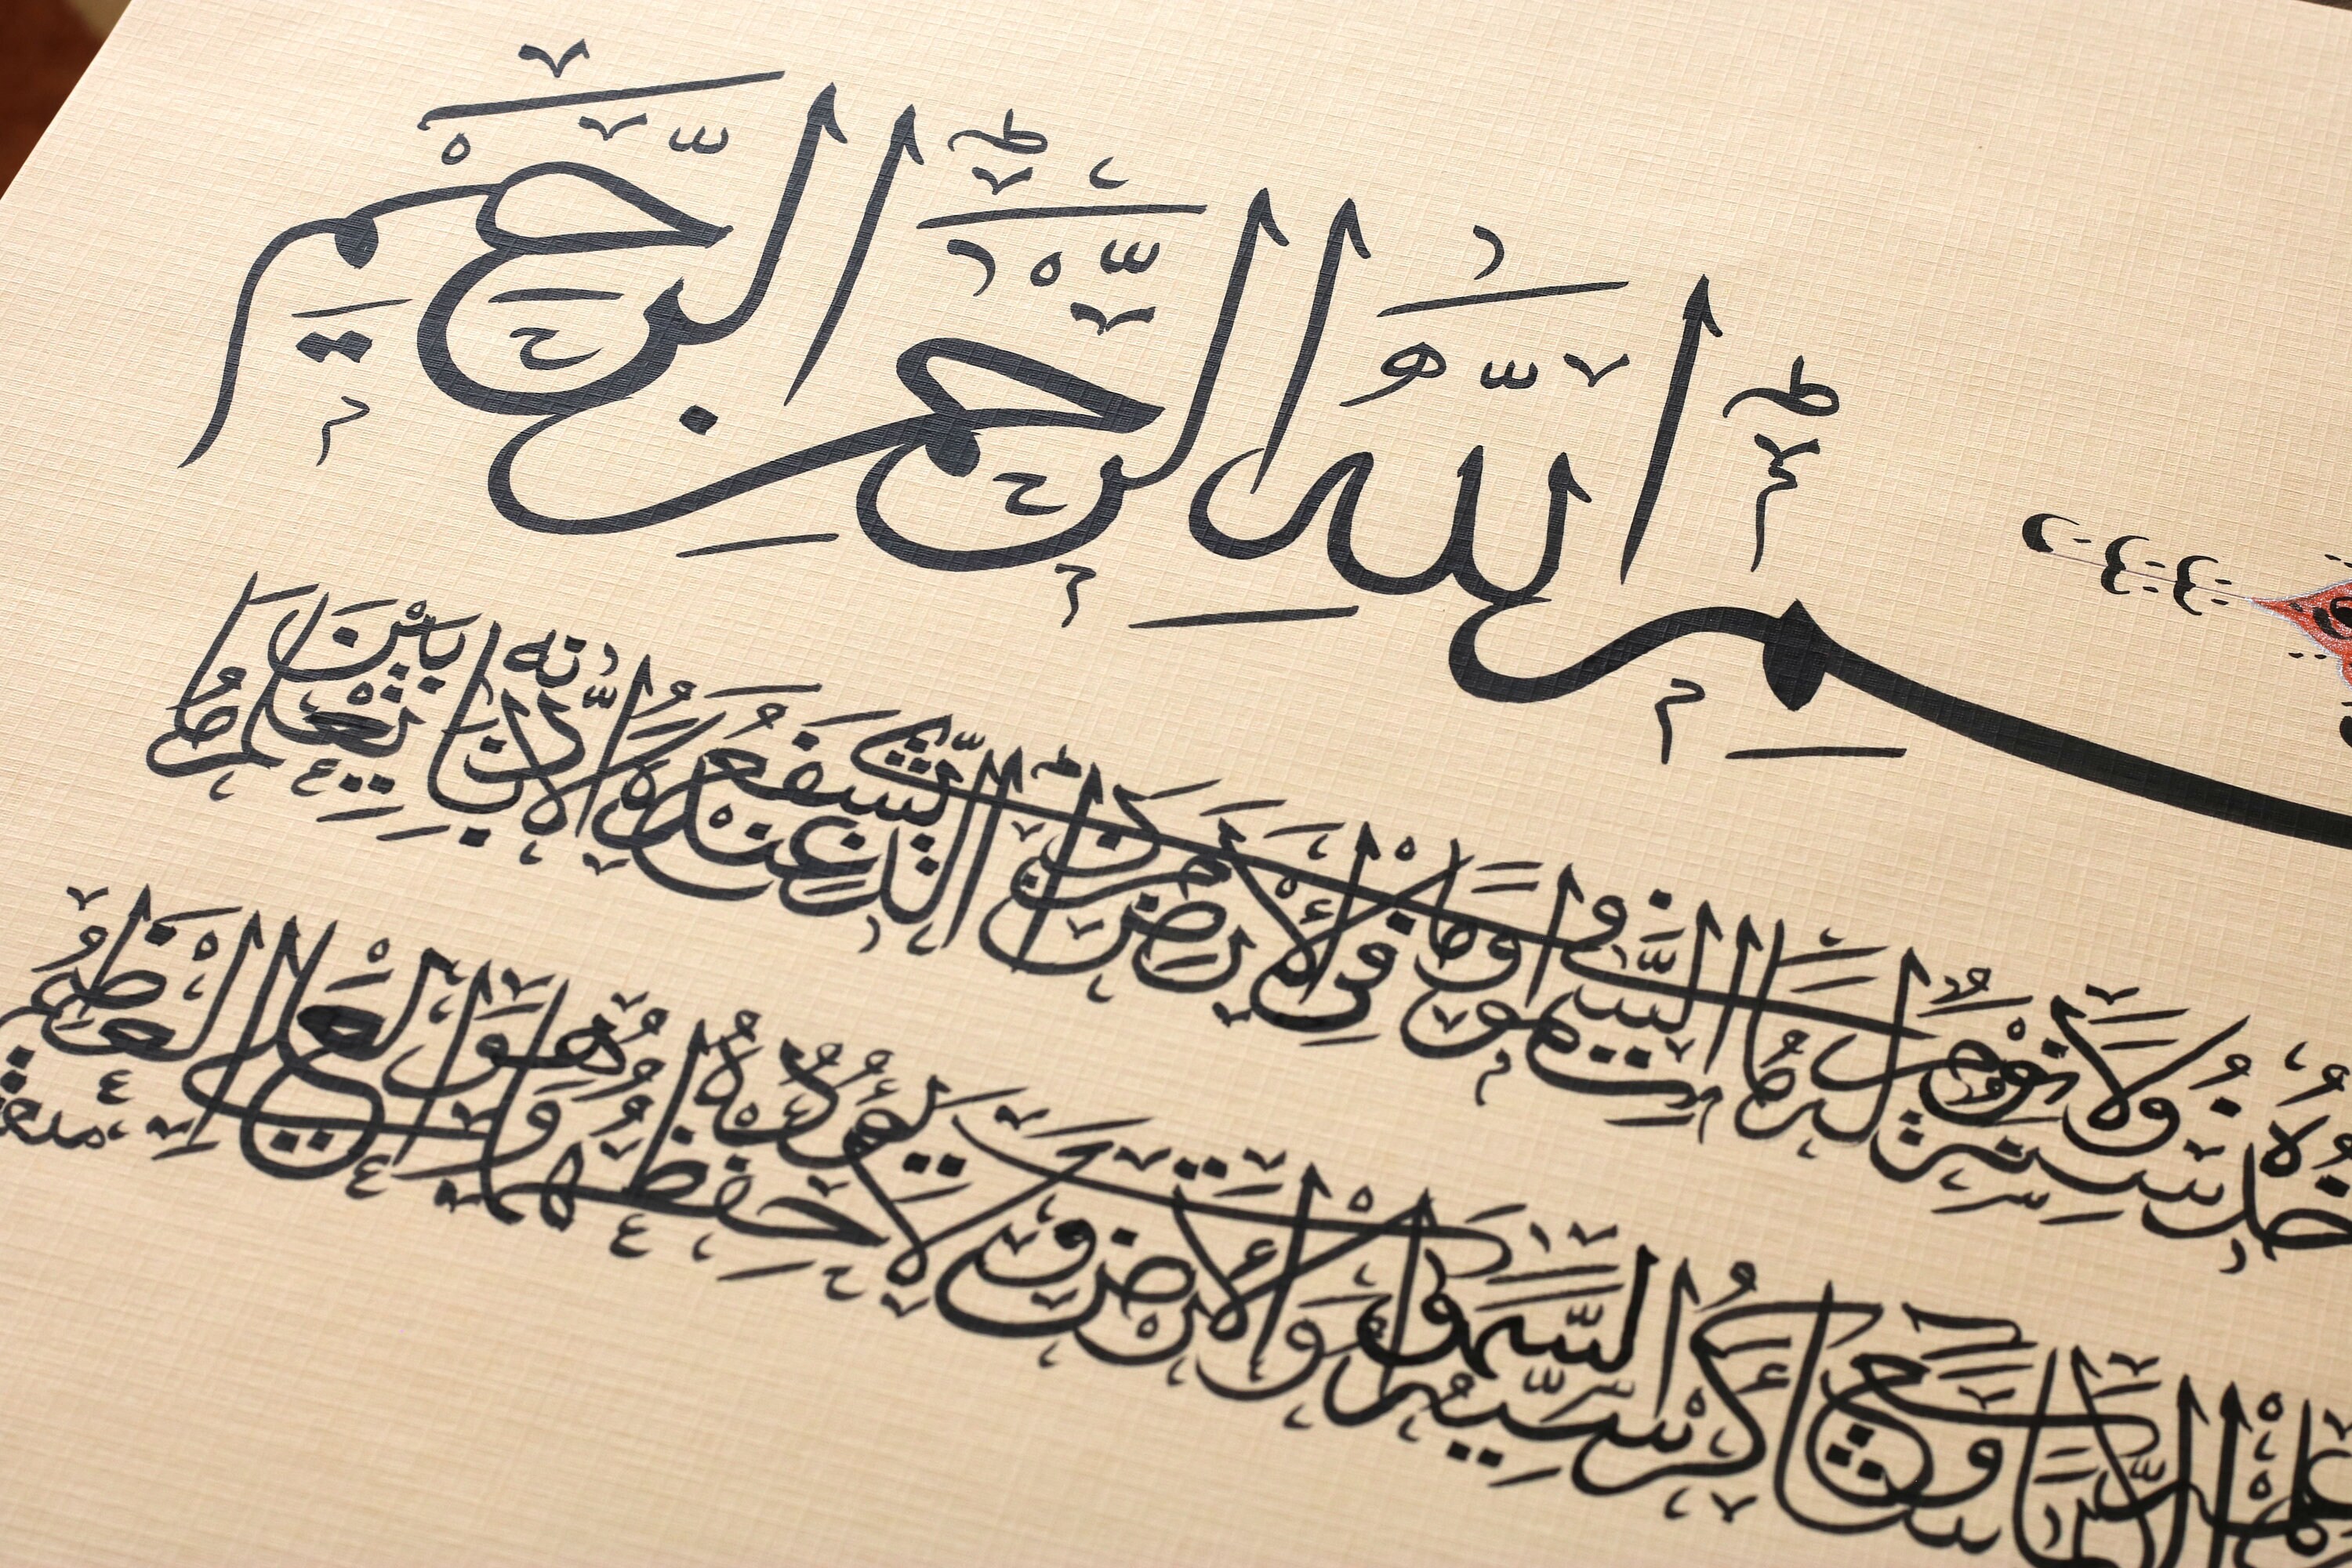 ـمِ اللَّهِ الرَّحْمٰنِ الرَّحِيمِ
ـخُذُهُ سِنَةٌ وَلَا نَوْمٌ لَهُ مَا فِي السَّمٰوَاتِ وَمَا فِي الْأَرْضِ مَنْ ذَا الَّذِي يَشْفَعُ عِنْدَهُ إِلَّا بِإِذْنِهِ يَعْلَمُ مَا بَيْنَ
عِلْمِهِ إِلَّا بِمَا شَاءَ وَسِعَ كُرْسِيُّهُ السَّمٰوَاتِ وَالْأَرْضَ وَلَا يَئُودُهُ حِفْظُهُمَا وَهُوَ الْعَلِيُّ الْعَظِيمُ